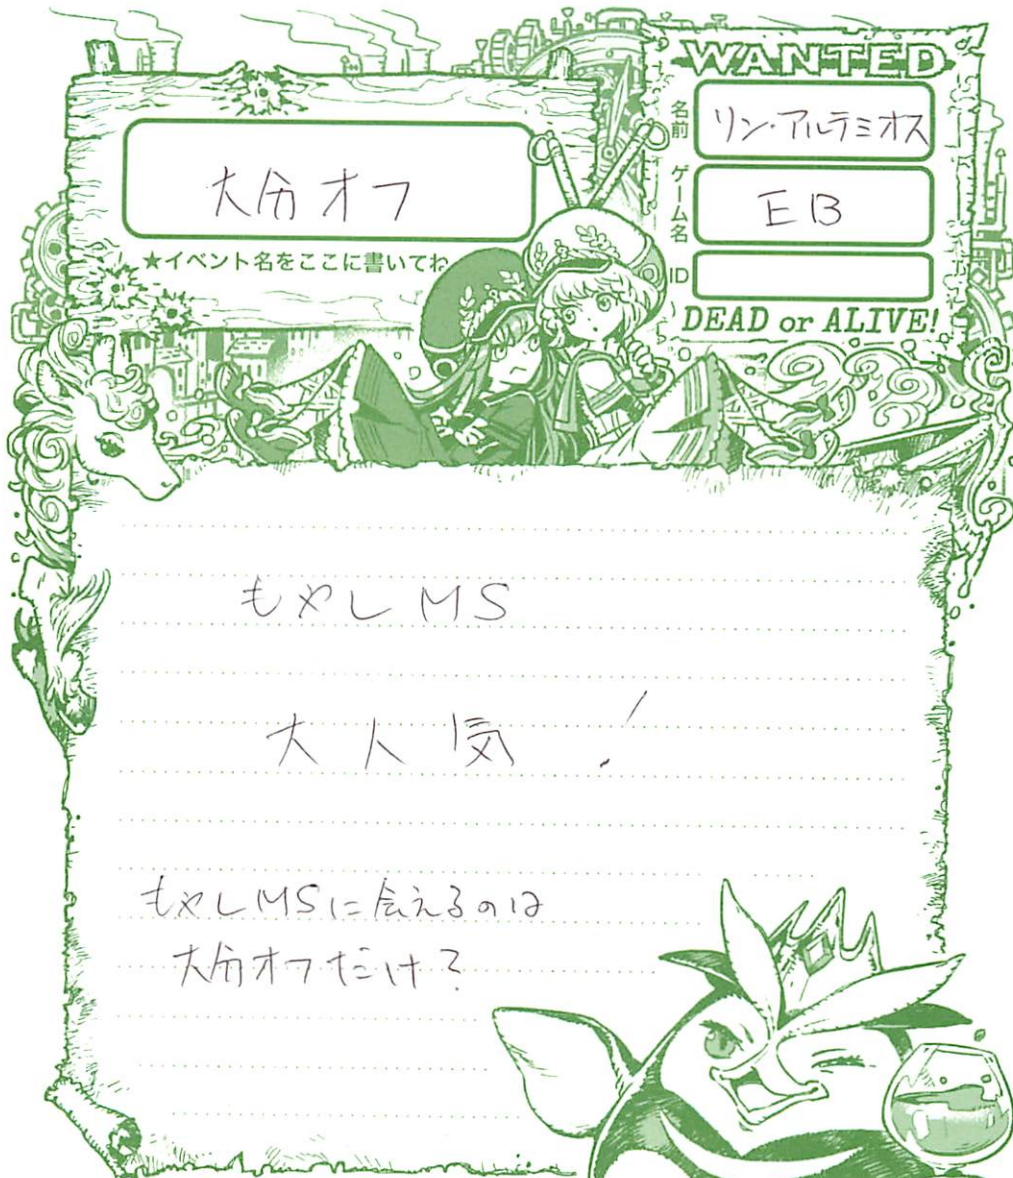 大分オフ
★イベント名をここに書いてね
WANTED
名前
リン・アルテミオス
ゲーム名
EB
ID
DEAD or ALIVE!
もやしMS
大人気!
もやしMSに会えるのは
大分オフだけ?